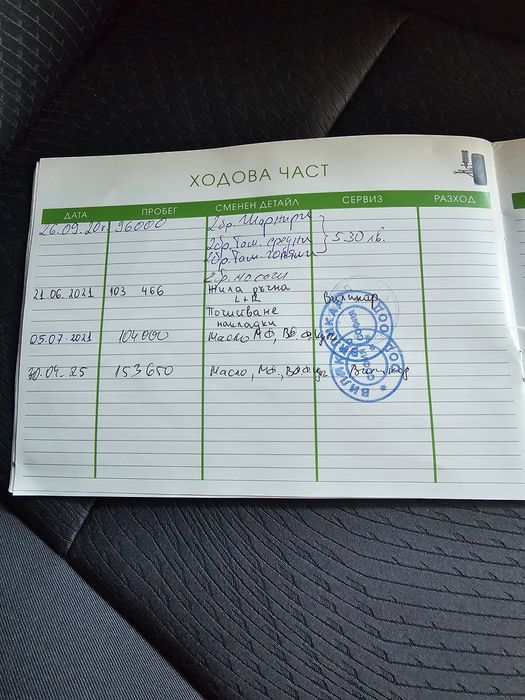 ХОДОВА ЧАСТ
ДАТА ПРОБЕГ СМЕНЕН ДЕТАЙЛ СЕРВИЗ РАЗХОД
26.09.20г. 96000 2бр. Шарнири
2бр. Там. средни 530 лв.
2бр. Там. големи
2бр. носачи
21.06.2021 103 466 Жила ръчна Виликар
L+R
Почистване
накладки
05.07.2021 104000 Масло, МФ, ВФ
30.04.25 153650 Масло, МФ, ВФ